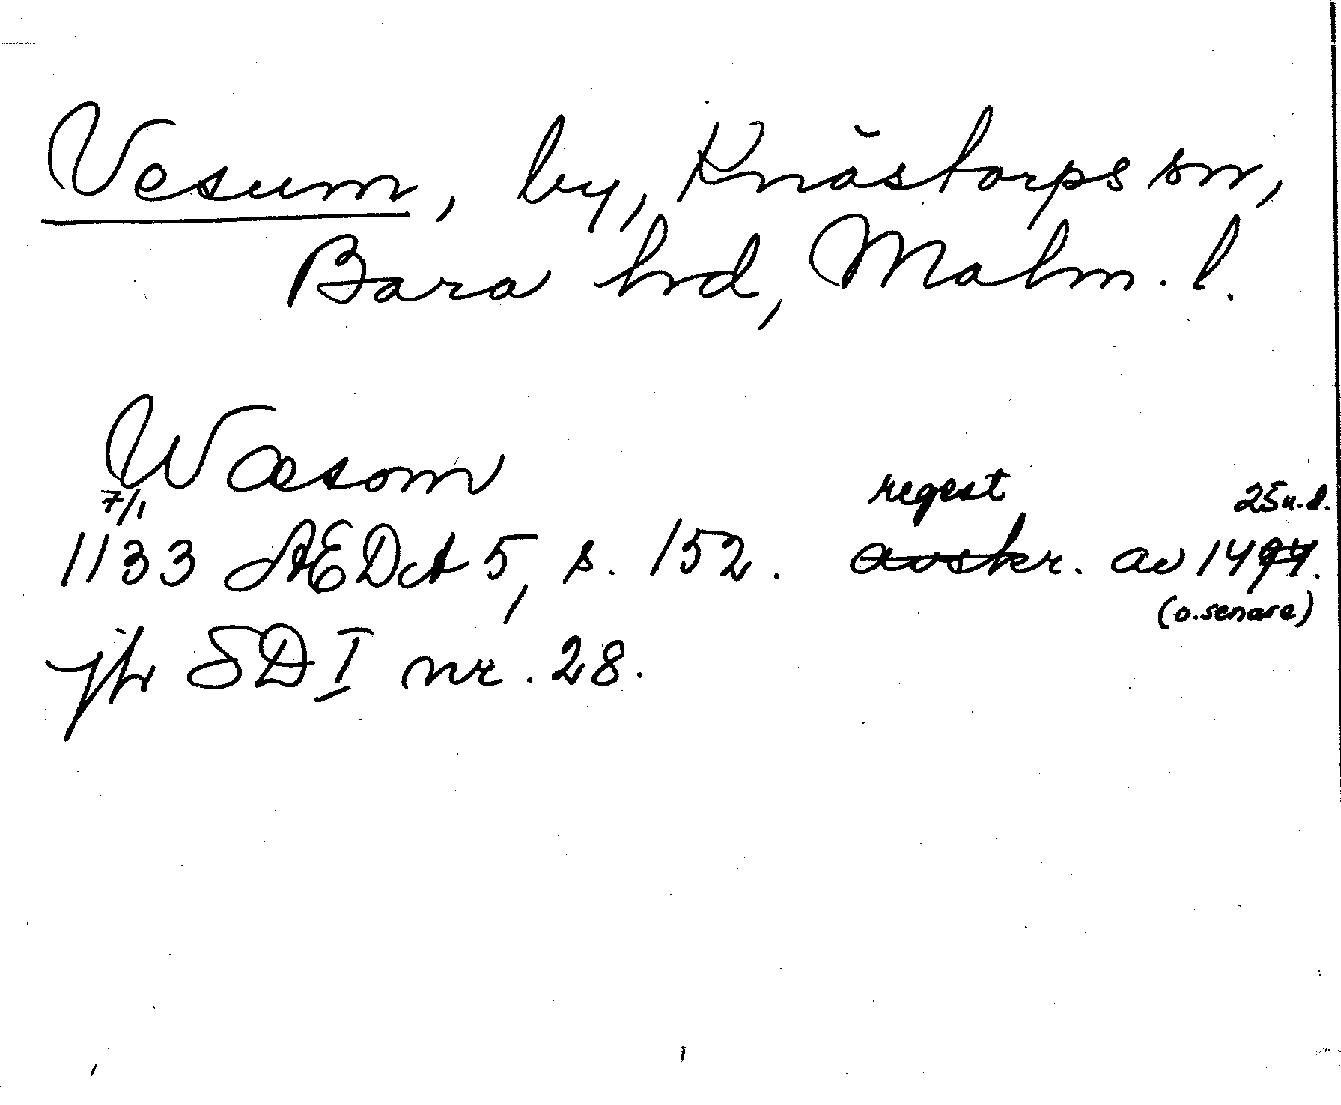 Vesum, by, Knästorps sn,
Bara hd, Malm. l.
Wæsom
7/1 regest 25 u.d.
1133 AEDA 5, s. 152. avskr. av 1494.
(o. senare)
jfr SD I nr. 28.